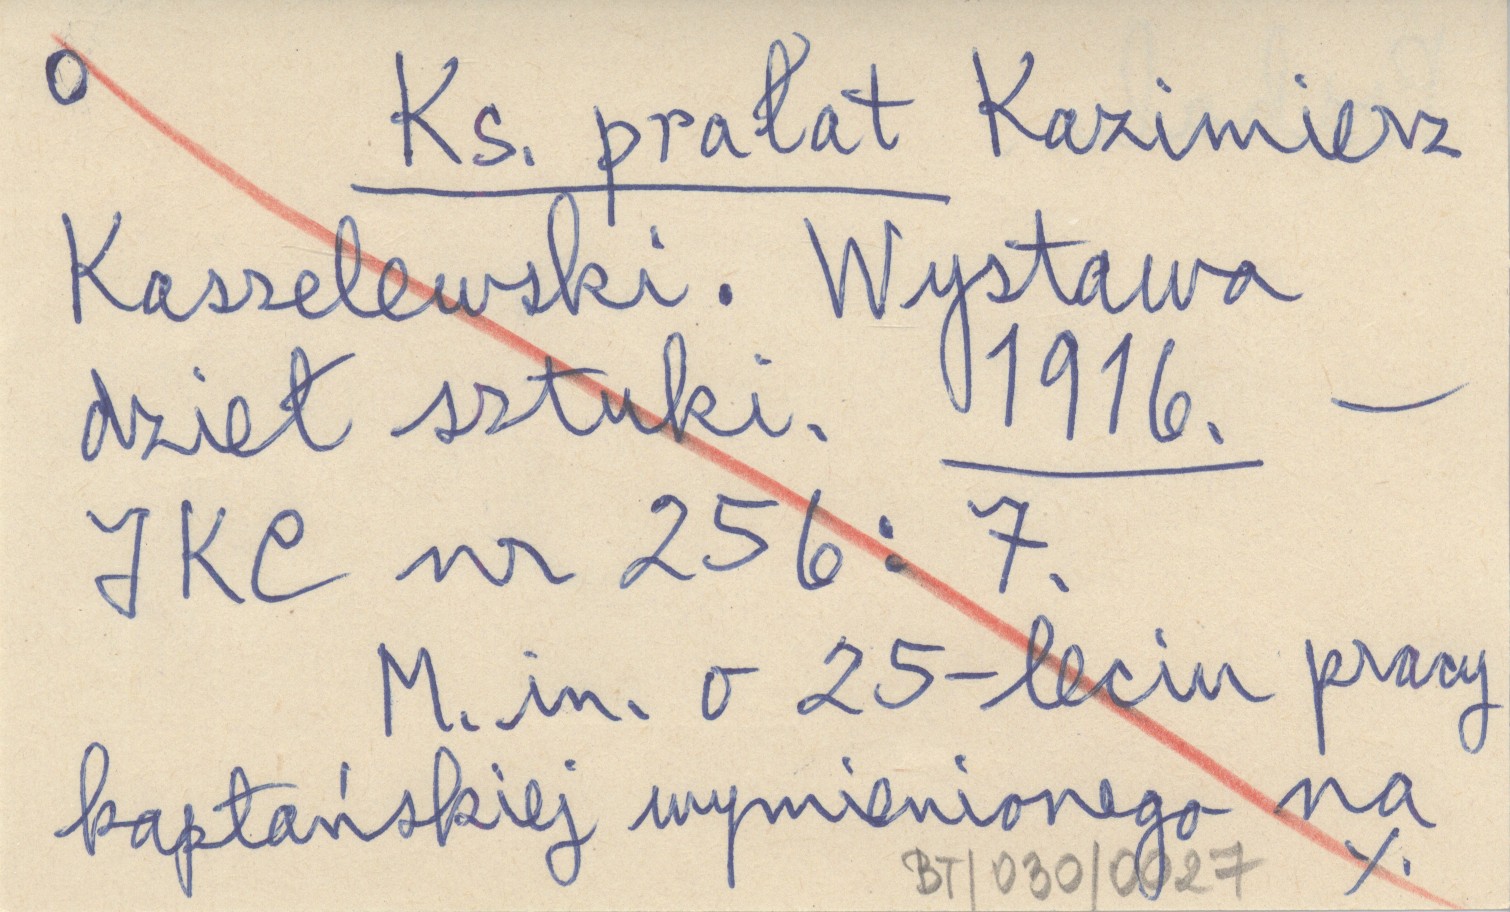 O Ks. prałat Kazimierz
Kaszelewski. Wystawa
dzieł sztuki. 1916. –
JKC nr 256: 7.
M. in. o 25-leciu pracy
kapłańskiej wymienionego na
BT/030/0027 ./.